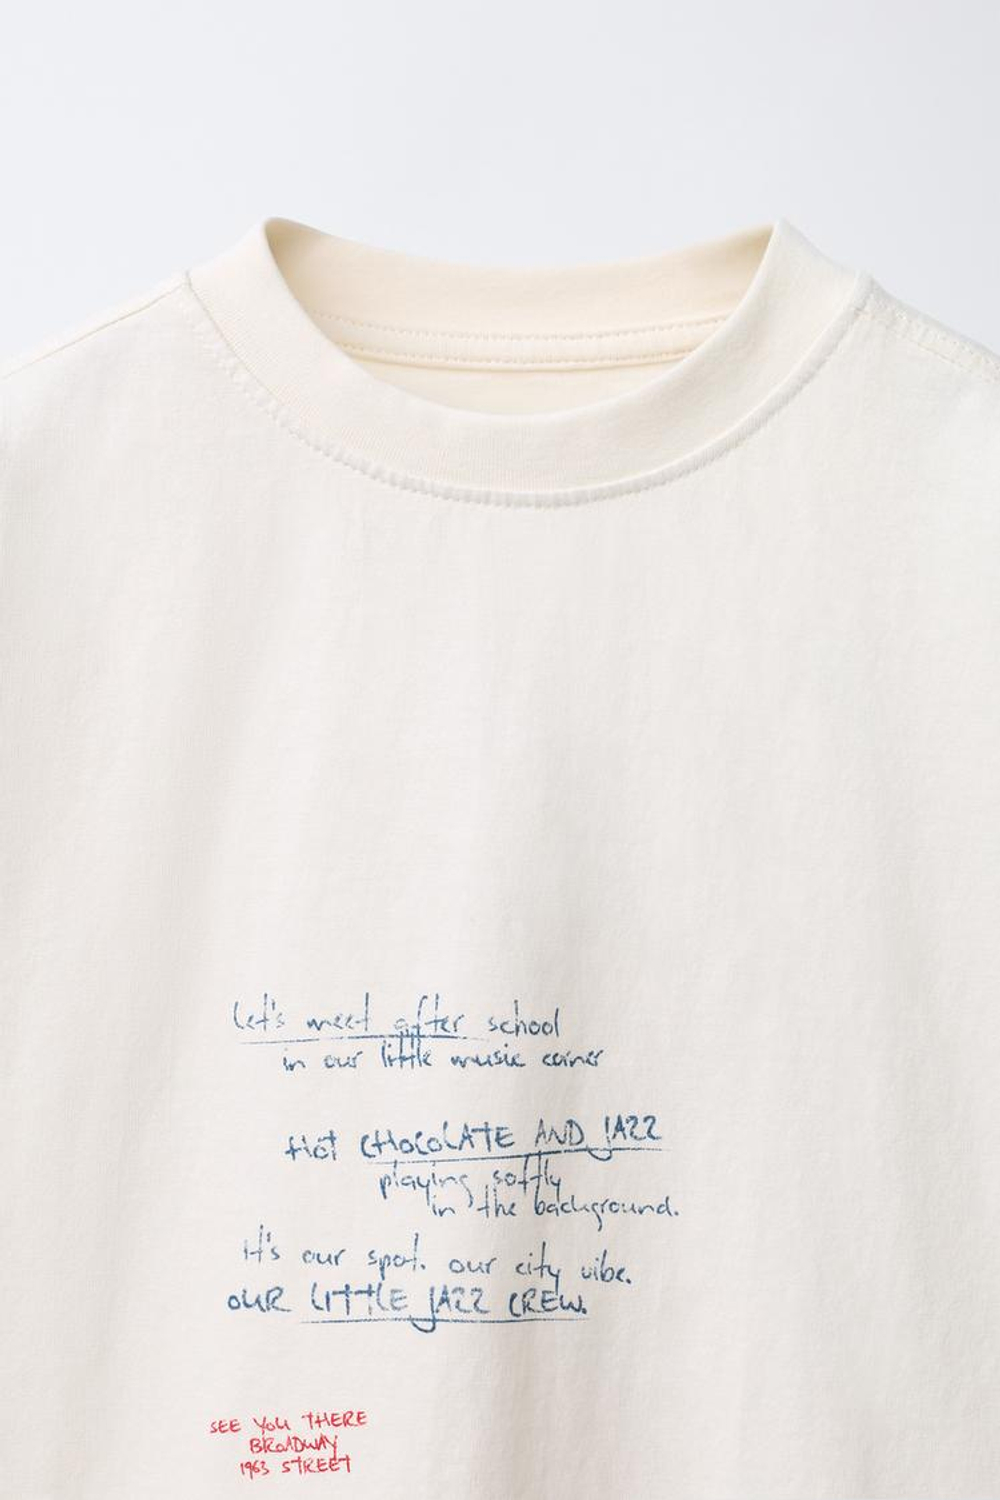 Let's meet after school
in our little music corner
Hot CHOCOLATE AND JAZZ
playing softly
in the background.
It's our spot. our city vibe.
OUR LITTLE JAZZ CREW.
SEE YOU THERE
BROADWAY
1963 STREET